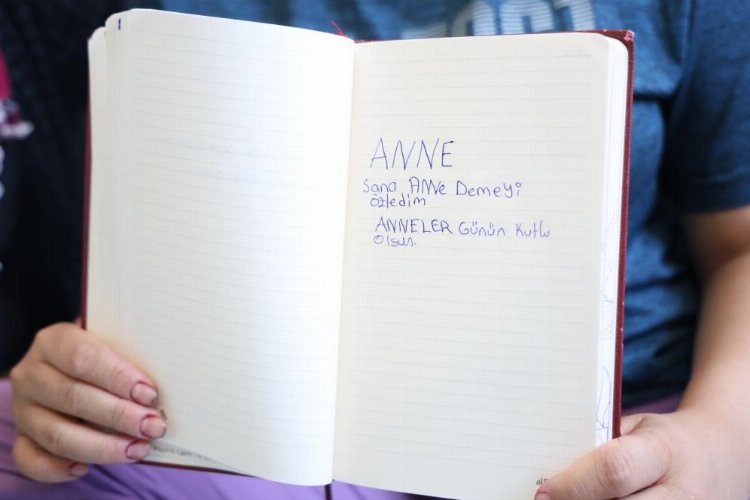 ANNE
Sana ANNe Demeyi
özledim
ANNELER Günün Kutlu
Olsun.